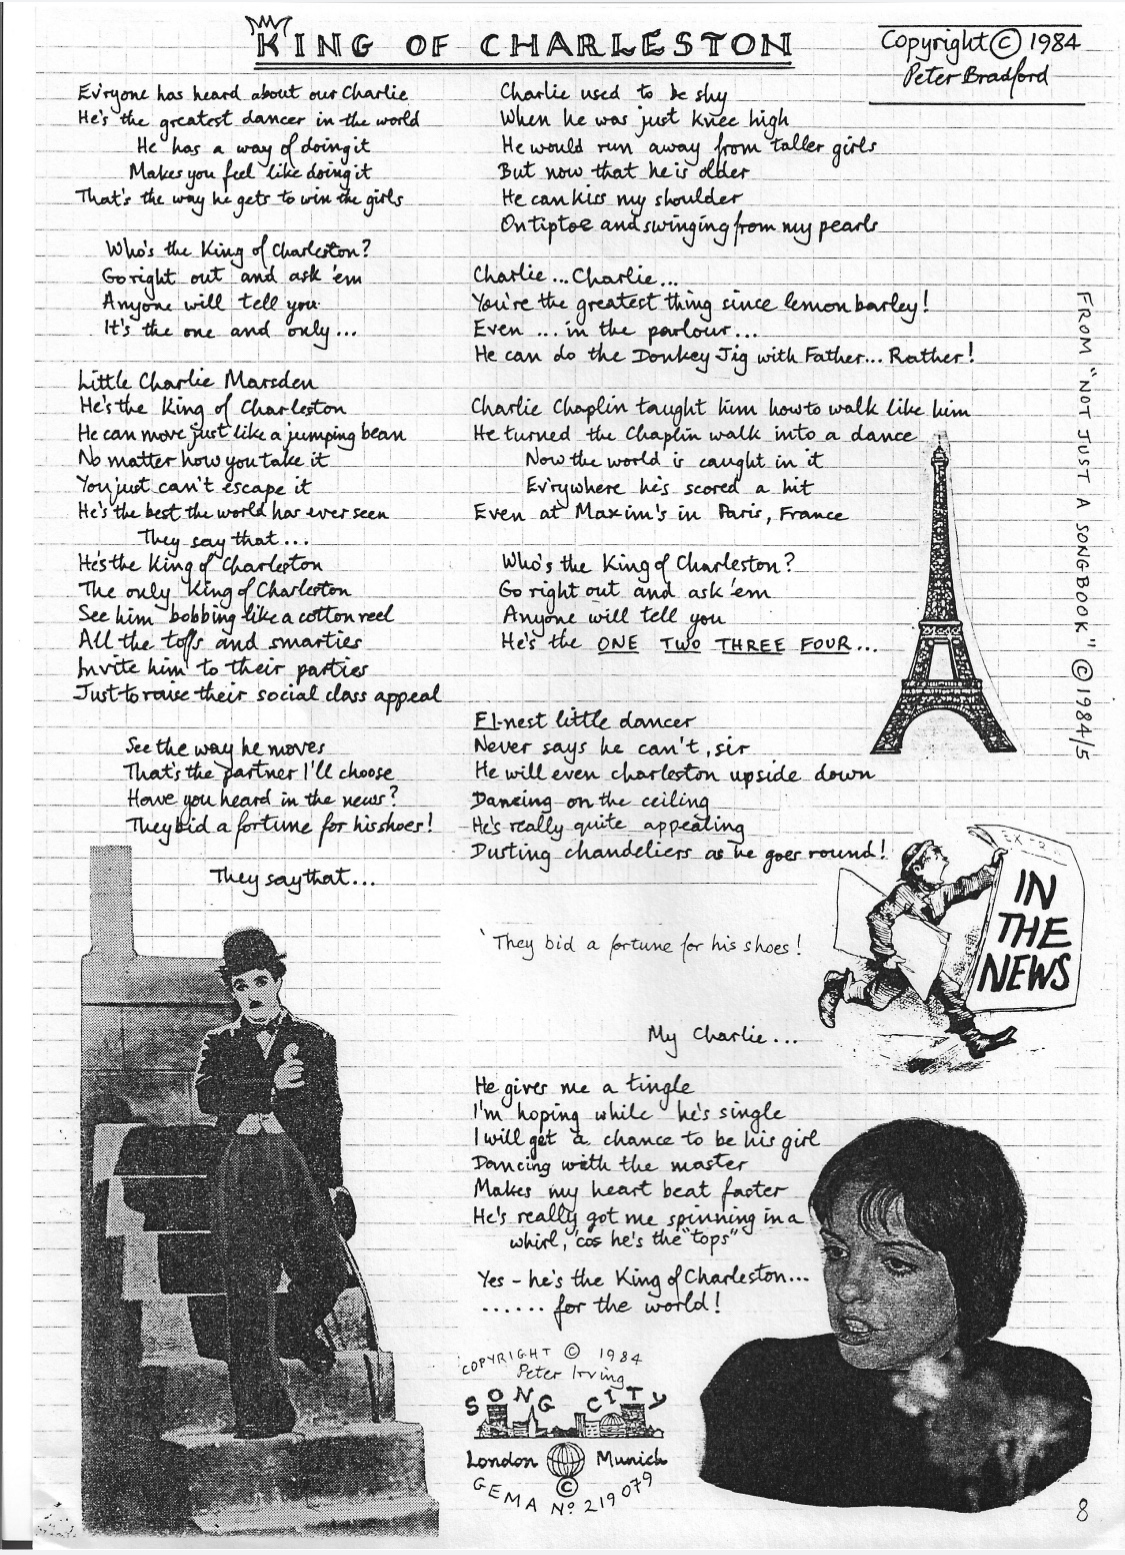 KING OF CHARLESTON
Copyright © 1984
Peter Bradford
Ev'ryone has heard about our Charlie
He's the greatest dancer in the world
He has a way of doing it
Makes you feel like doing it
That's the way he gets to win the girls
Who's the King of Charleston?
Go right out and ask 'em
Anyone will tell you
It's the one and only...
Little Charlie Marsden
He's the King of Charleston
He can move just like a jumping bean
No matter how you take it
You just can't escape it
He's the best the world has ever seen
They say that...
He's the King of Charleston
The only King of Charleston
See him bobbing like a cotton reel
All the toffs and smarties
Invite him to their parties
Just to raise their social class appeal
See the way he moves
That's the partner I'll choose
Have you heard in the news?
They bid a fortune for his shoes!
They say that...
Charlie used to be shy
When he was just knee high
He would run away from taller girls
But now that he is older
He can kiss my shoulder
On tiptoe and swinging from my pearls
Charlie... Charlie...
You're the greatest thing since lemon barley!
Even ... in the parlour...
He can do the Donkey Jig with Father... Rather!
Charlie Chaplin taught him how to walk like him
He turned the Chaplin walk into a dance
Now the world is caught in it
Ev'rywhere he's scored a hit
Even at Maxim's in Paris, France
Who's the King of Charleston?
Go right out and ask 'em
Anyone will tell you
He's the ONE TWO THREE FOUR...
FI-nest little dancer
Never says he can't, sir
He will even charleston upside down
Dancing on the ceiling
He's really quite appealing
Dusting chandeliers as he goes round!
'They bid a fortune for his shoes!
My Charlie...
He gives me a tingle
I'm hoping while he's single
I will get a chance to be his girl
Dancing with the master
Makes my heart beat faster
He's really got me spinning in a
whirl, 'cos he's the "tops"
Yes - he's the King of Charleston...
...... for the world!
FROM "NOT JUST A SONGBOOK" © 1984/5
EXTRA
IN
THE
NEWS
COPYRIGHT © 1984
Peter Irving
SONG CITY
London Munich
©
GEMA No 219079
8